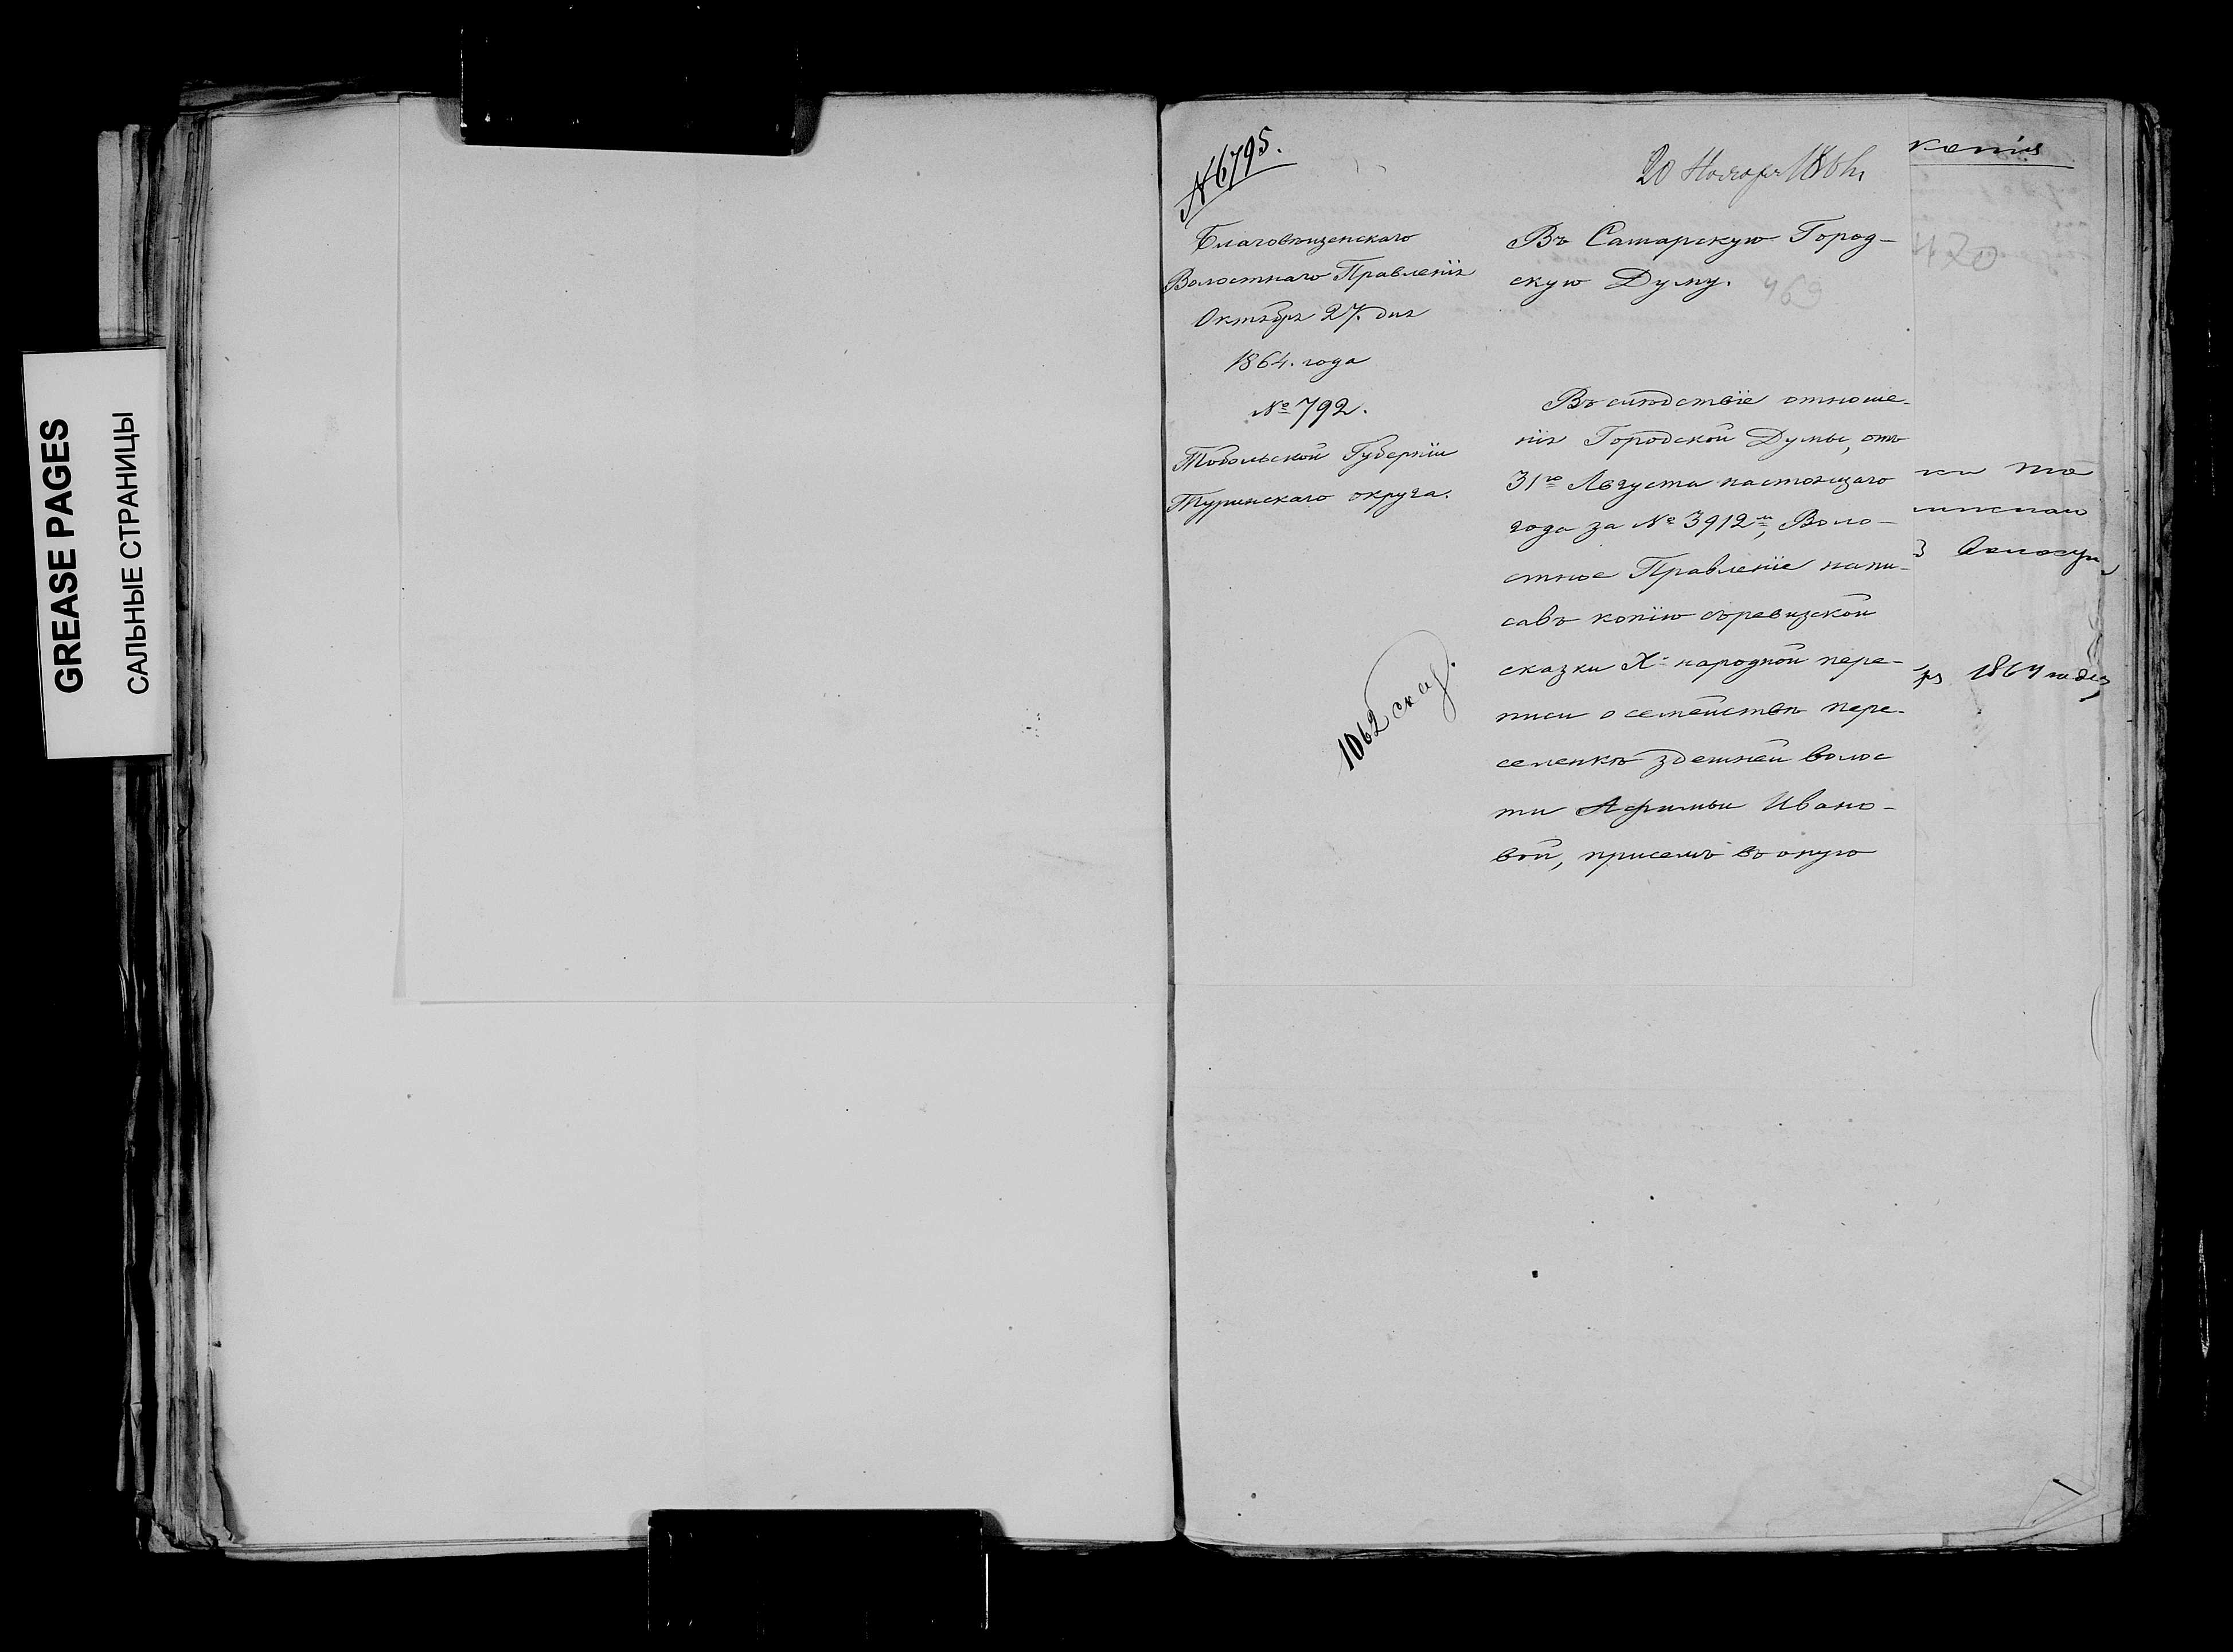 GREASE PAGES
САЛЬНЫЕ СТРАНИЦЫ
№ 6795.
20 Ноября 1864
Благовѣщенскаго
Волостнаго Правленія
Октября 27. дня
1864. года
№ 792.
Тобольской Губерніи
Туринскаго округа.
1062
Въ Самарскую Город-
скую Думу.
469
Въ слѣдствіе отноше-
нія Городской Думы, отъ
31го Августа настоящаго
года за № 3912м, Воло-
стное Правленіе напи-
савъ копію съ ревизской
сказки Х народной пере-
писи о семействѣ пере-
селенкѣ здешней волос
ти Афимьи Ивано-
вой, присемъ въ оную
470
1864 года